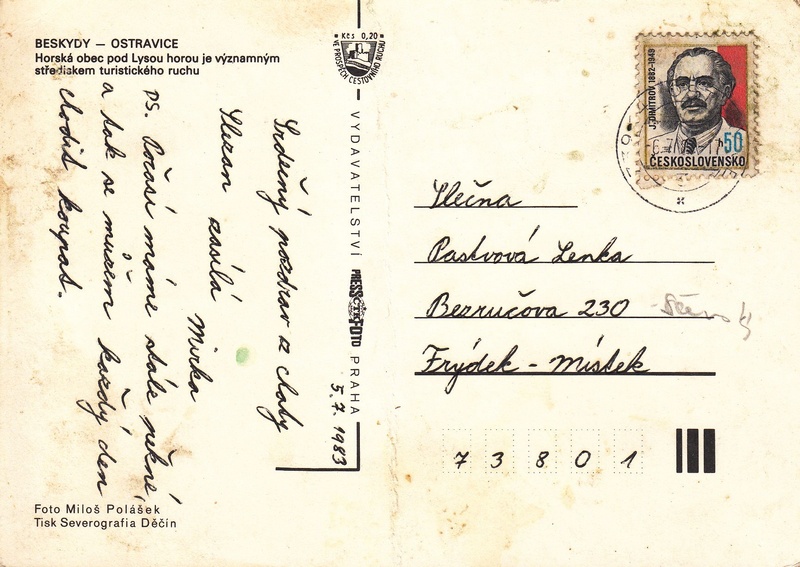 BESKYDY — OSTRAVICE
Horská obec pod Lysou horou je významným
střediskem turistického ruchu
Srdečný pozdrav z chaty
Slezan zasílá
Mirka
PS. Počasí máme stále pěkné,
a tak se můžem každý den
chodit koupat.
5.7.1983
Foto Miloš Polášek
Tisk Severografia Děčín
Kčs 0,20
VE PROSPĚCH CESTOVNÍHO RUCHU
VYDAVATELSTVÍ PRESSFOTO PRAHA
ČTK
J. DIMITROV 1882-1949
50
ČESKOSLOVENSKO
Slečna
Pastvová Lenka
Bezručova 230
Frýdek - Místek
73801